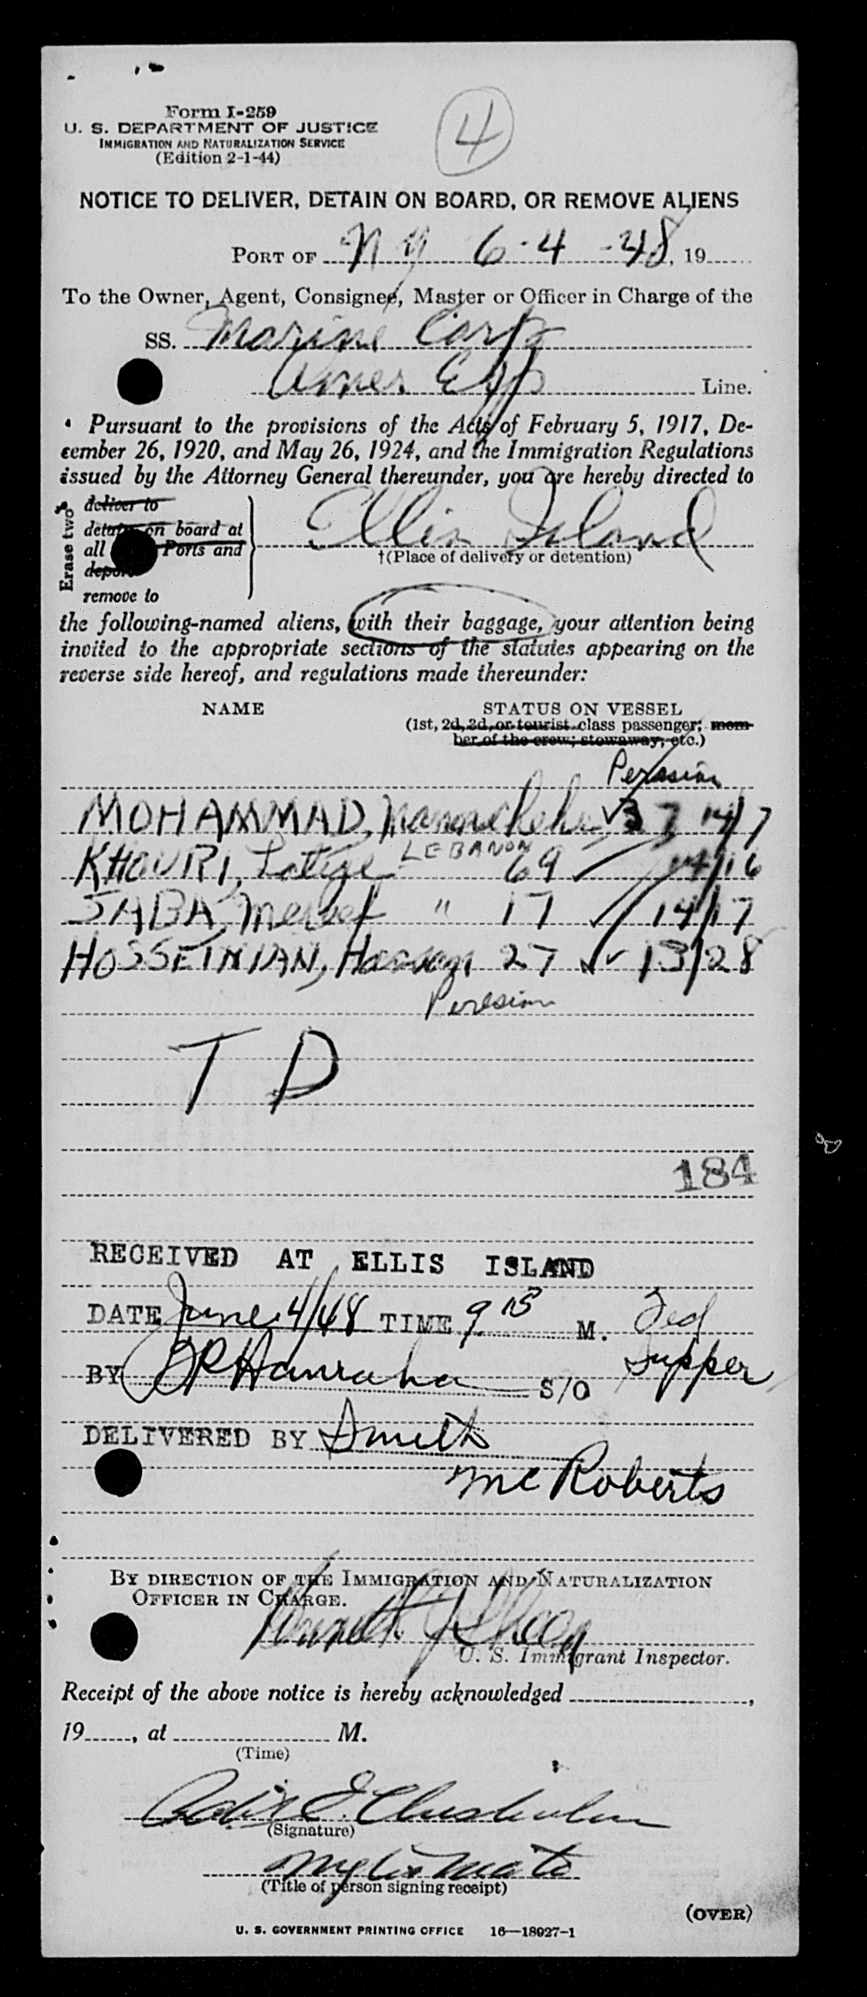 4
Form I-259
U. S. DEPARTMENT OF JUSTICE
IMMIGRATION AND NATURALIZATION SERVICE
(Edition 2-1-44)
NOTICE TO DELIVER, DETAIN ON BOARD, OR REMOVE ALIENS
PORT OF N Y 6-4-48, 19
To the Owner, Agent, Consignee, Master or Officer in Charge of the
SS. Marine Carp
Amer Exp Line.
Pursuant to the provisions of the Acts of February 5, 1917, De-
cember 26, 1920, and May 26, 1924, and the Immigration Regulations
issued by the Attorney General thereunder, you are hereby directed to
Erase two*
deliver to
detain on board at
all Ports and
depor
remove to
Ellis Island
†(Place of delivery or detention)
the following-named aliens, with their baggage, your attention being
invited to the appropriate sections of the statutes appearing on the
reverse side hereof, and regulations made thereunder:
NAME STATUS ON VESSEL
(1st, 2d, 3d, or tourist class passenger; mem-
ber of the crew; stowaway, etc.)
Persian
MOHAMMAD, 37 14/7
KHOURI, LEBANON 69 14/16
SABA, " 17 14/17
HOSSEINIAN, 27 13/28
Peresian
T D
184
RECEIVED AT ELLIS ISLAND
DATE June 4/48 TIME 9 15 M. Fed
BY Hanraha S/O Supper
DELIVERED BY Smith
McRoberts
BY DIRECTION OF THE IMMIGRATION AND NATURALIZATION
OFFICER IN CHARGE.
Kenneth J
U. S. Immigrant Inspector.
Receipt of the above notice is hereby acknowledged ,
19 , at M.
(Time)
Chisholm
(Signature)
(Title of person signing receipt)
(OVER)
U. S. GOVERNMENT PRINTING OFFICE 16—18027-1